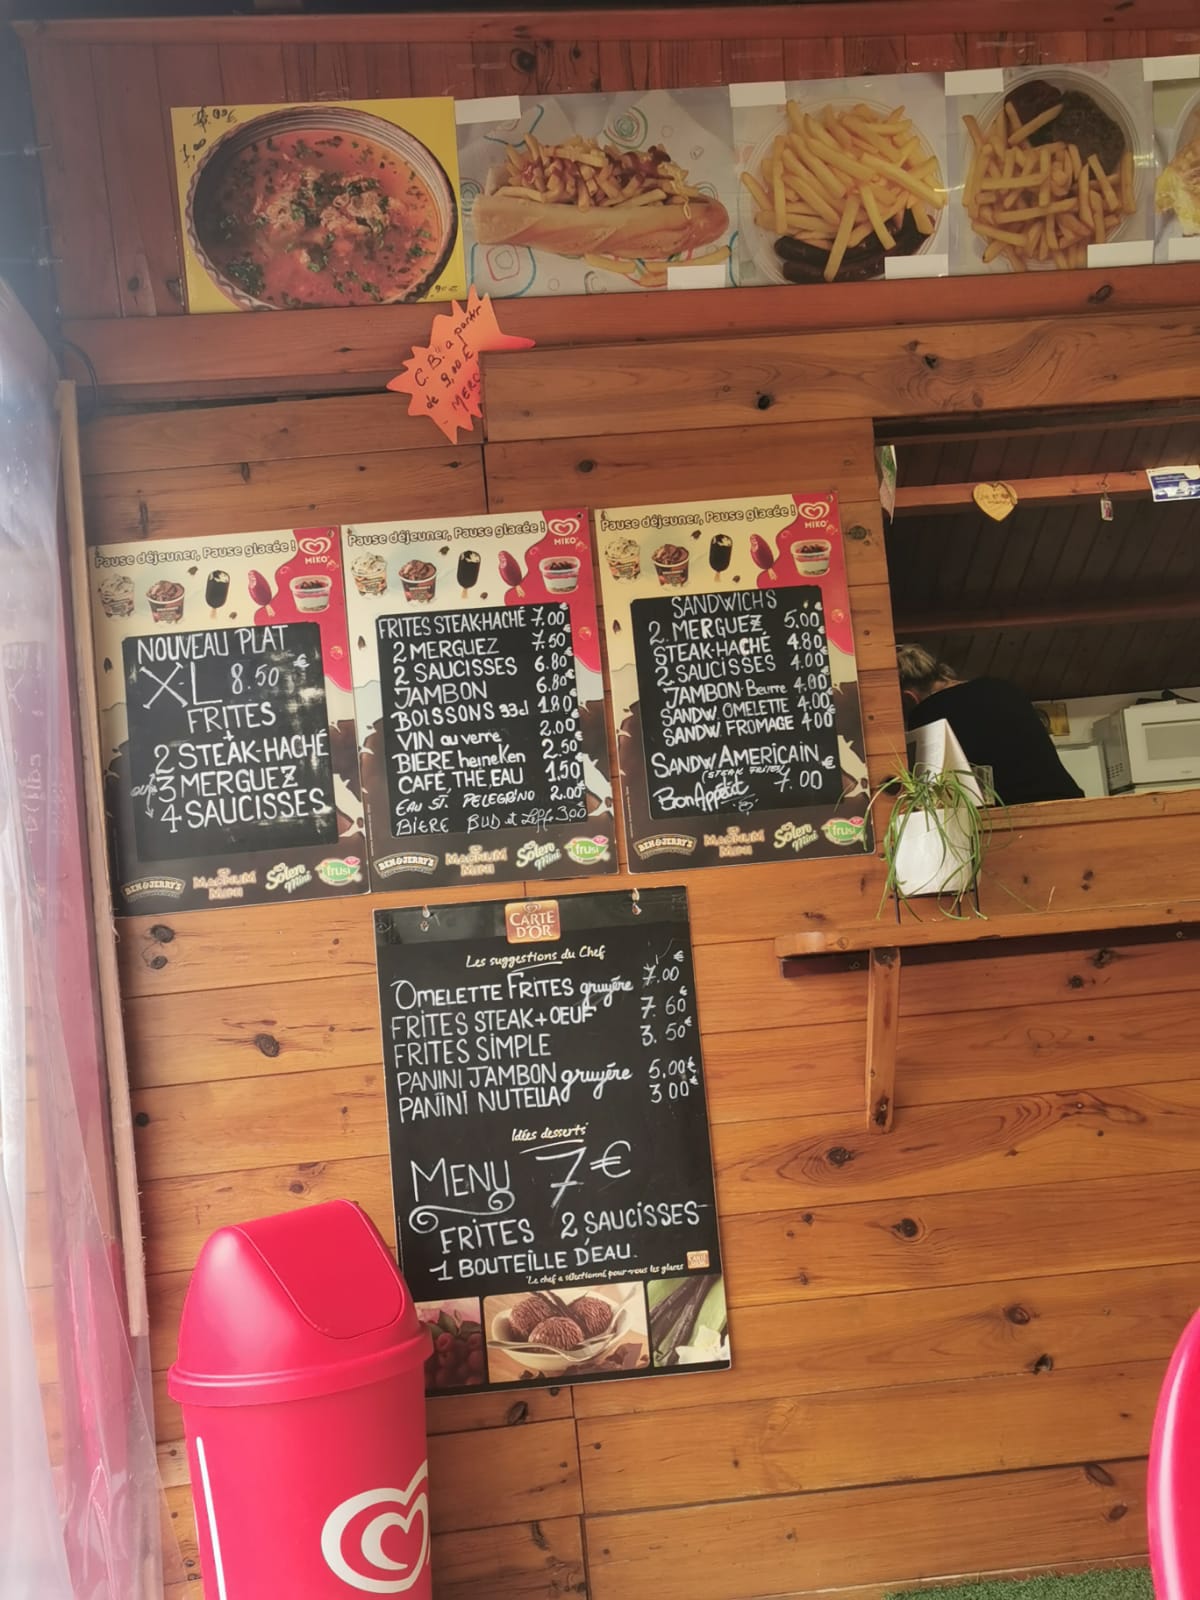 C.B. a partir
de 9,00 €
MERCI
Pause déjeuner, Pause glacée !
MIKO
NOUVEAU PLAT
XL 8.50 €
FRITES
+
2 STEAK-HACHÉ
3 MERGUEZ
4 SAUCISSES
BEN & JERRY'S
MAGNUM
MINI
Solero
Mini
frusi
Pause déjeuner, Pause glacée !
MIKO
FRITES STEAK-HACHÉ 7.00€
2 MERGUEZ 7.50
2 SAUCISSES 6.80€
JAMBON 6.80€
BOISSONS 33cl 1.80€
VIN au verre 2.00€
BIERE heineKen 2.50€
CAFÉ, THE, EAU 1.50€
EAU ST. PELEGRINO 2.00€
BIERE BUD et Leffe 3.00€
BEN & JERRY'S
MAGNUM
MINI
Solero
Mini
frusi
Pause déjeuner, Pause glacée !
MIKO
SANDWICHS
2 MERGUEZ 5.00€
STEAK-HACHÉ 4.80€
2 SAUCISSES 4.00€
JAMBON-Beurre 4.00€
SANDW. OMELETTE 4.00€
SANDW. FROMAGE 4.00€
SANDW AMERICAIN €
(STEAK FRITES) 7.00
Bon Appétit
BEN & JERRY'S
MAGNUM
MINI
Solero
Mini
frusi
CARTE
D'OR
Les suggestions du Chef
OMELETTE FRITES gruyère 7.00€
FRITES STEAK+OEUF 7.60€
FRITES SIMPLE 3.50€
PANINI JAMBON gruyère 5.00€
PANINI NUTELLA 3.00€
Idées desserts
MENU 7€
FRITES 2 SAUCISSES
1 BOUTEILLE D'EAU.
*Le chef a sélectionné pour vous les glaces
CARTE
D'OR